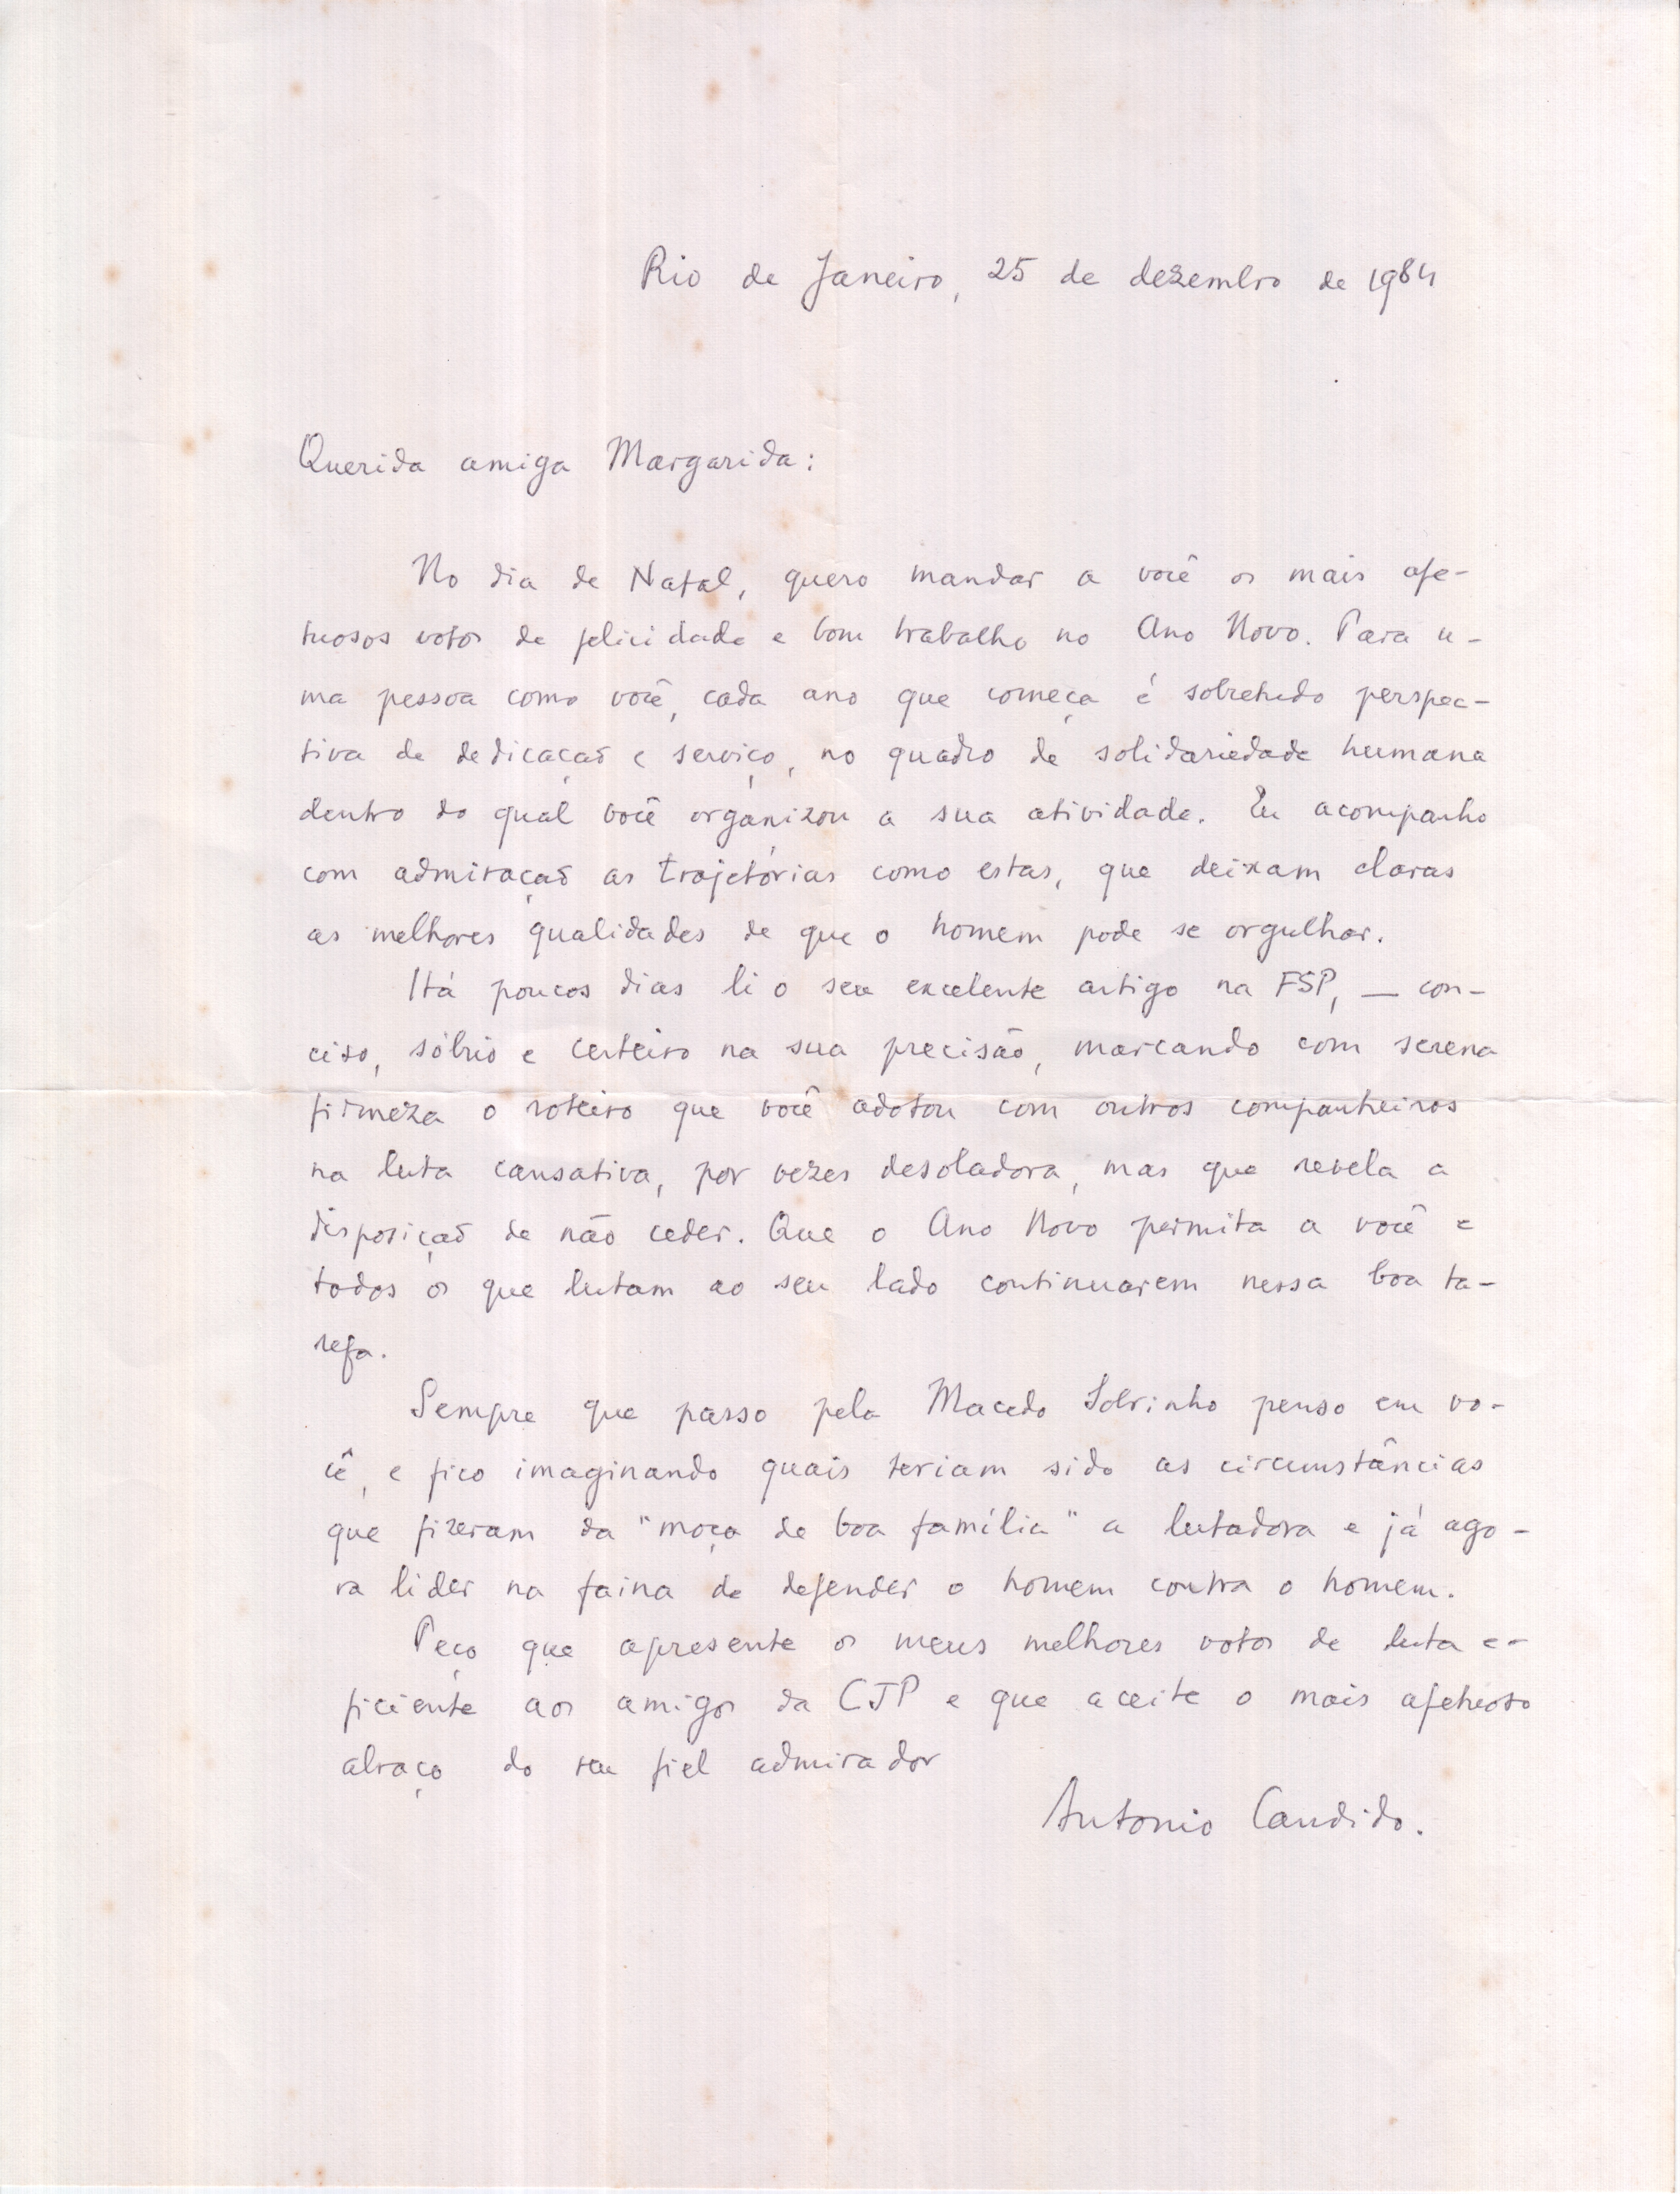 Rio de Janeiro, 25 de dezembro de 1984
Querida amiga Margarida:
No dia de Natal, quero mandar a você os mais afe-
tuosos votos de felicidade e bom trabalho no Ano Novo. Para u-
ma pessoa como você, cada ano que começa é sobretudo perspec-
tiva de dedicação e serviço, no quadro de solidariedade humana
dentro do qual você organizou a sua atividade. Eu acompanho
com admiração as trajetórias como estas, que deixam claras
as melhores qualidades de que o homem pode se orgulhar.
Há poucos dias li o seu excelente artigo na FSP, — con-
ciso, sóbrio e certeiro na sua precisão, marcando com serena
firmeza o roteiro que você adotou com outros companheiros
na luta cansativa, por vezes desoladora, mas que revela a
disposição de não ceder. Que o Ano Novo permita a você e
todos os que lutam ao seu lado continuarem nessa boa ta-
refa.
Sempre que passo pela Macedo Sobrinho penso em vo-
cê, e fico imaginando quais teriam sido as circunstâncias
que fizeram da "moça de boa família" a lutadora e já ago-
ra lider na faina de defender o homem contra o homem.
Peço que apresente os meus melhores votos de luta e-
ficiente aos amigos da CJP e que aceite o mais afetuoso
abraço do seu fiel admirador
Antonio Candido.